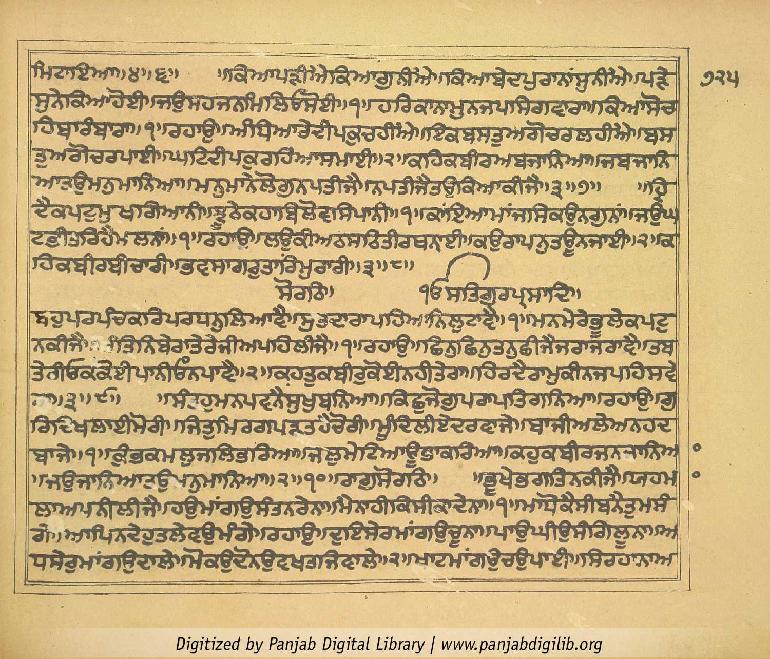 ਮਿਟਾਇਆ॥੪॥੬॥ ॥ਕਿਆਪੜੀਐਕਿਆਗੁਨੀਐ॥ਕਿਆਬੇਦਪੁਰਾਨਾਂਸੁਨੀਐ॥ਪੜੇ ੭੨੫
ਸੁਨੇਕਿਆਹੋਈ॥ਜਉਸਹਜਨਮਿਲਿਓਸੋਈ॥੧॥ਹਰਿਕਾਨਾਮੁਨਜਪਸਿਗਵਾਰਾ॥ਕਿਆਸੋਚ
ਹਿਬਾਰੰਬਾਰਾ॥੧॥ਰਹਾਉ॥ਅੰਧਿਆਰੇਦੀਪਕੁਚਹੀਐ॥ਇਕਬਸਤੁਅਗੋਚਰਲਹੀਐ॥ਬਸ
ਤੁਅਗੋਚਰਪਾਈ॥ਘਟਿਦੀਪਕੁਰਹਿਆਸਮਾਈ॥੨॥ਕਹਿਕਬੀਰਅਬਜਾਨਿਆ॥ਜਬਜਾਨਿ
ਆਤਉਮਨੁਮਾਨਿਆ॥ਮਨੁਮਾਨੇਲੋਗੁਨਪਤੀਜੈ॥ਨਪਤੀਜੈਤਉਕਿਆਕੀਜੈ॥੩॥੭॥ ॥ਹ੍ਰਿ
ਦੈਕਪਟੁਮੁਖਗਿਆਨੀ॥ਝੂਠੇਕਹਾਬਿਲੋਵਸਿਪਾਨੀ॥੧॥ਕਾਂਇਆਮਾਂਜਸਿਕਉਨਗੁਨਾਂ॥ਜਉਘ
ਟਭੀਤਰਿਹੈਮਲਨਾਂ॥੧॥ਰਹਾਉ॥ਲਉਕੀਅਠਸਠਿਤੀਰਥਨ੍ਹਾਈ॥ਕਉਰਾਪਨੁਤਊਨਜਾਈ॥੨॥ਕ
ਹਿਕਬੀਰਬੀਚਾਰੀ॥ਭਵਸਾਗਰੁਤਾਰਿਮੁਰਾਰੀ॥੩॥੮॥
ਸੋਰਠਿ॥ ੴਸਤਿਗੁਰਪ੍ਰਸਾਦਿ॥
ਬਹੁਪਰਪੰਚਕਰਿਪਰਧਨੁਲਿਆਵੈ॥ਸੁਤਦਾਰਾਪਹਿਆਨਿਲੁਟਾਵੈ॥੧॥ਮਨਮੇਰੇਭੂਲੇਕਪਟੁ
ਨਕੀਜੈ॥ਅੰਤਿਨਿਬੇਰਾਤੇਰੇਜੀਅਪਹਿਲੀਜੈ॥੧॥ਰਹਾਉ॥ਛਿਨੁਛਿਨੁਤਨੁਛੀਜੈਜਰਾਜਨਾਵੈ॥ਤਬ
ਤੇਰੀਓਕਕੋਈਪਾਨੀਓਨਪਾਵੈ॥੨॥ਕਹਤੁਕਬੀਰੁਕੋਈਨਹੀਤੇਰਾ॥ਹਿਰਦੈਰਾਮੁਕੀਨਜਪਹਿਸਵੇ
ਰਾ॥੩॥੯॥ ॥ਸੰਤਹੁਮਨਪਵਨੈਸੁਖੁਬਨਿਆ॥ਕਿਛੁਜੋਗੁਪਰਾਪਤਿਗਨਿਆ॥ਰਹਾਉ॥ਗੁ
ਰਿਦਿਖਲਾਈਮੋਰੀ॥ਜਿਤੁਮਿਰਗਪੜਤਹੈਚੋਰੀ॥ਮੂੰਦਿਲੀਏਦਰਵਾਜੇ॥ਬਾਜੀਅਲੇਅਨਹਦ
ਬਾਜੇ॥੧॥ਕੁੰਭਕਮਲੁਜਲਿਭਰਿਆ॥ਜਲੁਮੇਟਿਆਊਭਾਕਰਿਆ॥ਕਹੁਕਬੀਰਜਨਜਾਨਿਆ
॥ਜਉਜਾਨਿਆਤਉਮਨੁਮਾਨਿਆ॥੨॥੧੦॥ਰਾਗੁਸੋਰਠਿ॥ ॥ਭੂਖੇਭਗਤਿਨਕੀਜੈ॥ਯਹਮ
ਲਾਅਪਨੀਲੀਜੈ॥ਹਉਮਾਂਗਉਸੰਤਨਰੇਨਾ॥ਮੈਨਾਹੀਕਿਸੀਕਾਦੇਨਾ॥੧॥ਮਾਧੋਕੈਸੀਬਨੈਤੁਮਸੰ
ਗੇ॥ਆਪਿਨਦੇਹੁਤਲੇਵਉਮੰਗੇ॥ਰਹਾਉ॥ਦੁਇਸੇਰਮਾਂਗਉਚੂਨਾ॥ਪਾਉਘੀਉਸੰਗਿਲੂਨਾ॥ਅ
ਧਸੇਰੁਮਾਂਗਉਦਾਲੇ॥ਮੋਕਉਦੋਨਉਵਖਤਜਿਵਾਲੇ॥੨॥ਖਾਟਮਾਂਗਉਚਉਪਾਈ॥ਸਿਰਹਾਨਾਅ
Digitized by Panjab Digital Library | www.panjabdigilib.org